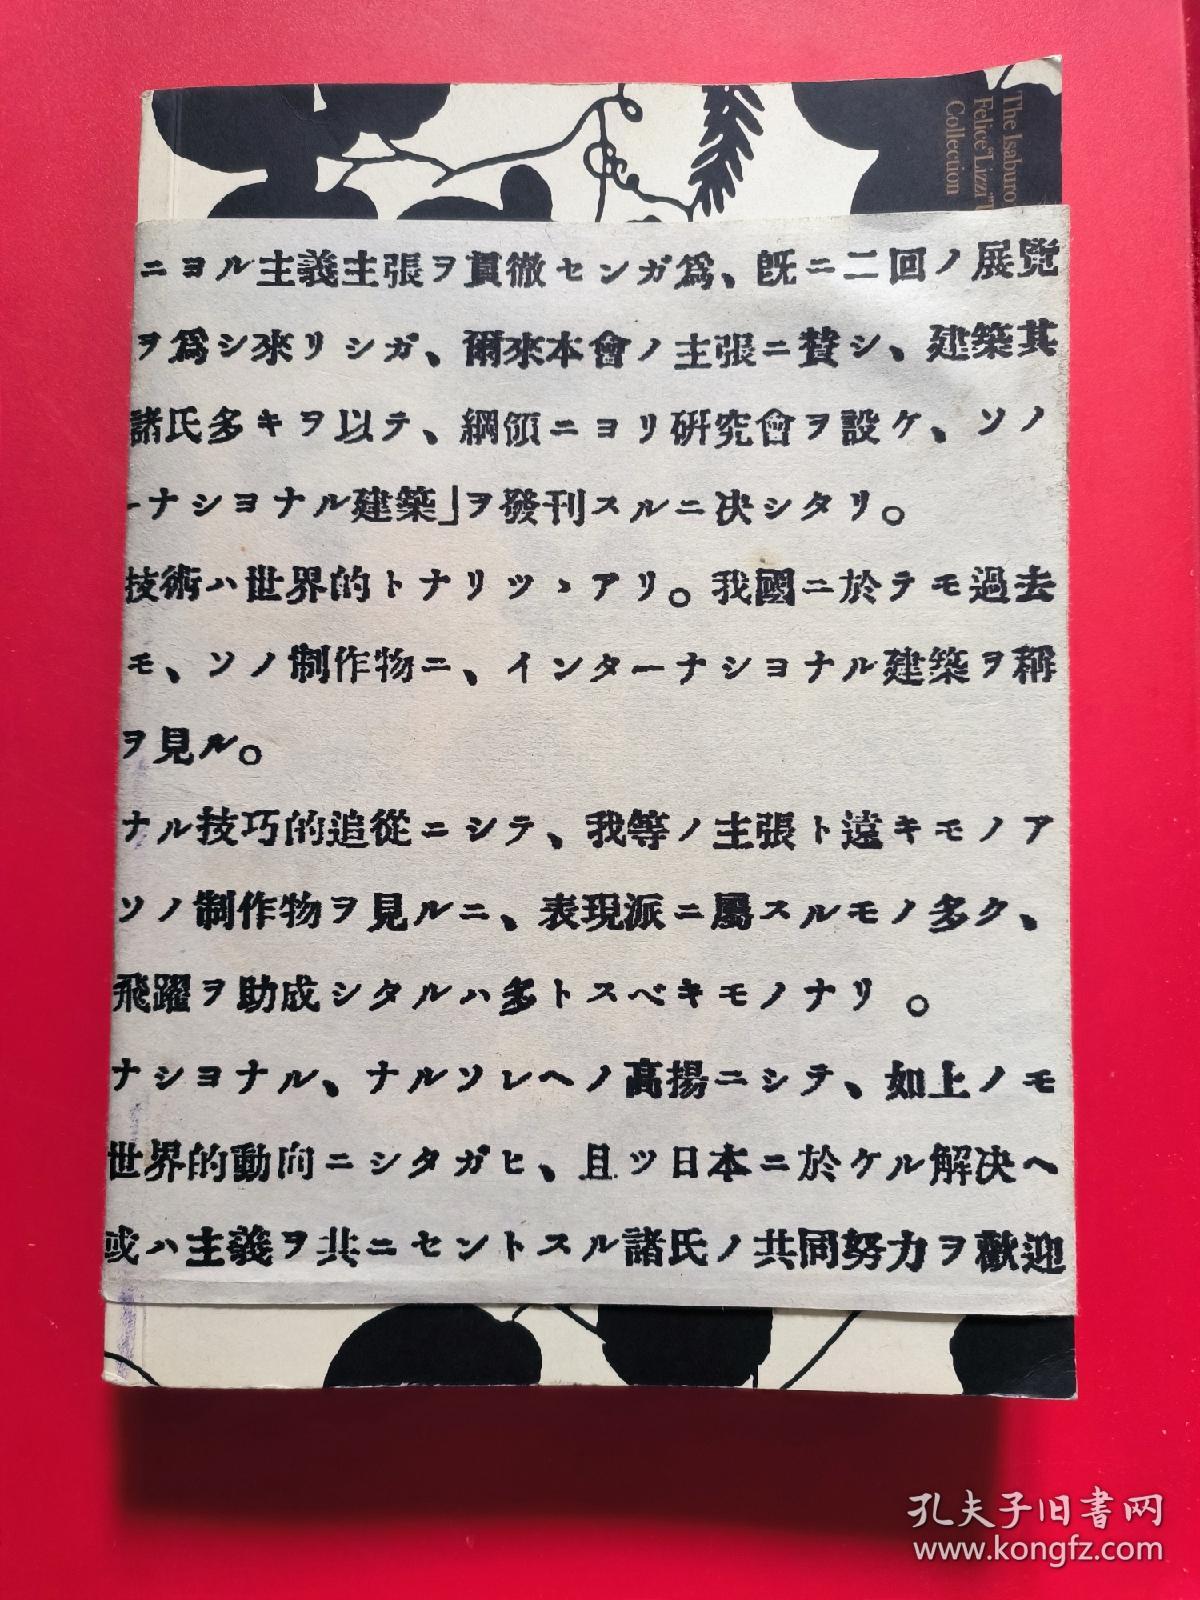 The Isaburo
Felice "Lizzi"
Collection
ニヨル主義主張ヲ貫徹センガ爲、既ニ二回ノ展覽
ヲ爲シ來リシガ、爾來本會ノ主張ニ賛シ、建築其
諸氏多キヲ以テ、綱領ニヨリ研究會ヲ設ケ、ソノ
ーナシヨナル建築」ヲ發刊スルニ決シタリ。
技術ハ世界的トナリツヽアリ。我國ニ於テモ過去
モ、ソノ制作物ニ、インターナシヨナル建築ヲ稱
ヲ見ル。
ナル技巧的追從ニシテ、我等ノ主張ト遠キモノア
ソノ制作物ヲ見ルニ、表現派ニ屬スルモノ多ク、
飛躍ヲ助成シタルハ多トスベキモノナリ。
ナシヨナル、ナルソレヘノ高揚ニシテ、如上ノモ
世界的動向ニシタガヒ、且ツ日本ニ於ケル解決ヘ
或ハ主義ヲ共ニセントスル諸氏ノ共同努力ヲ歡迎
孔夫子旧书网
www.kongfz.com